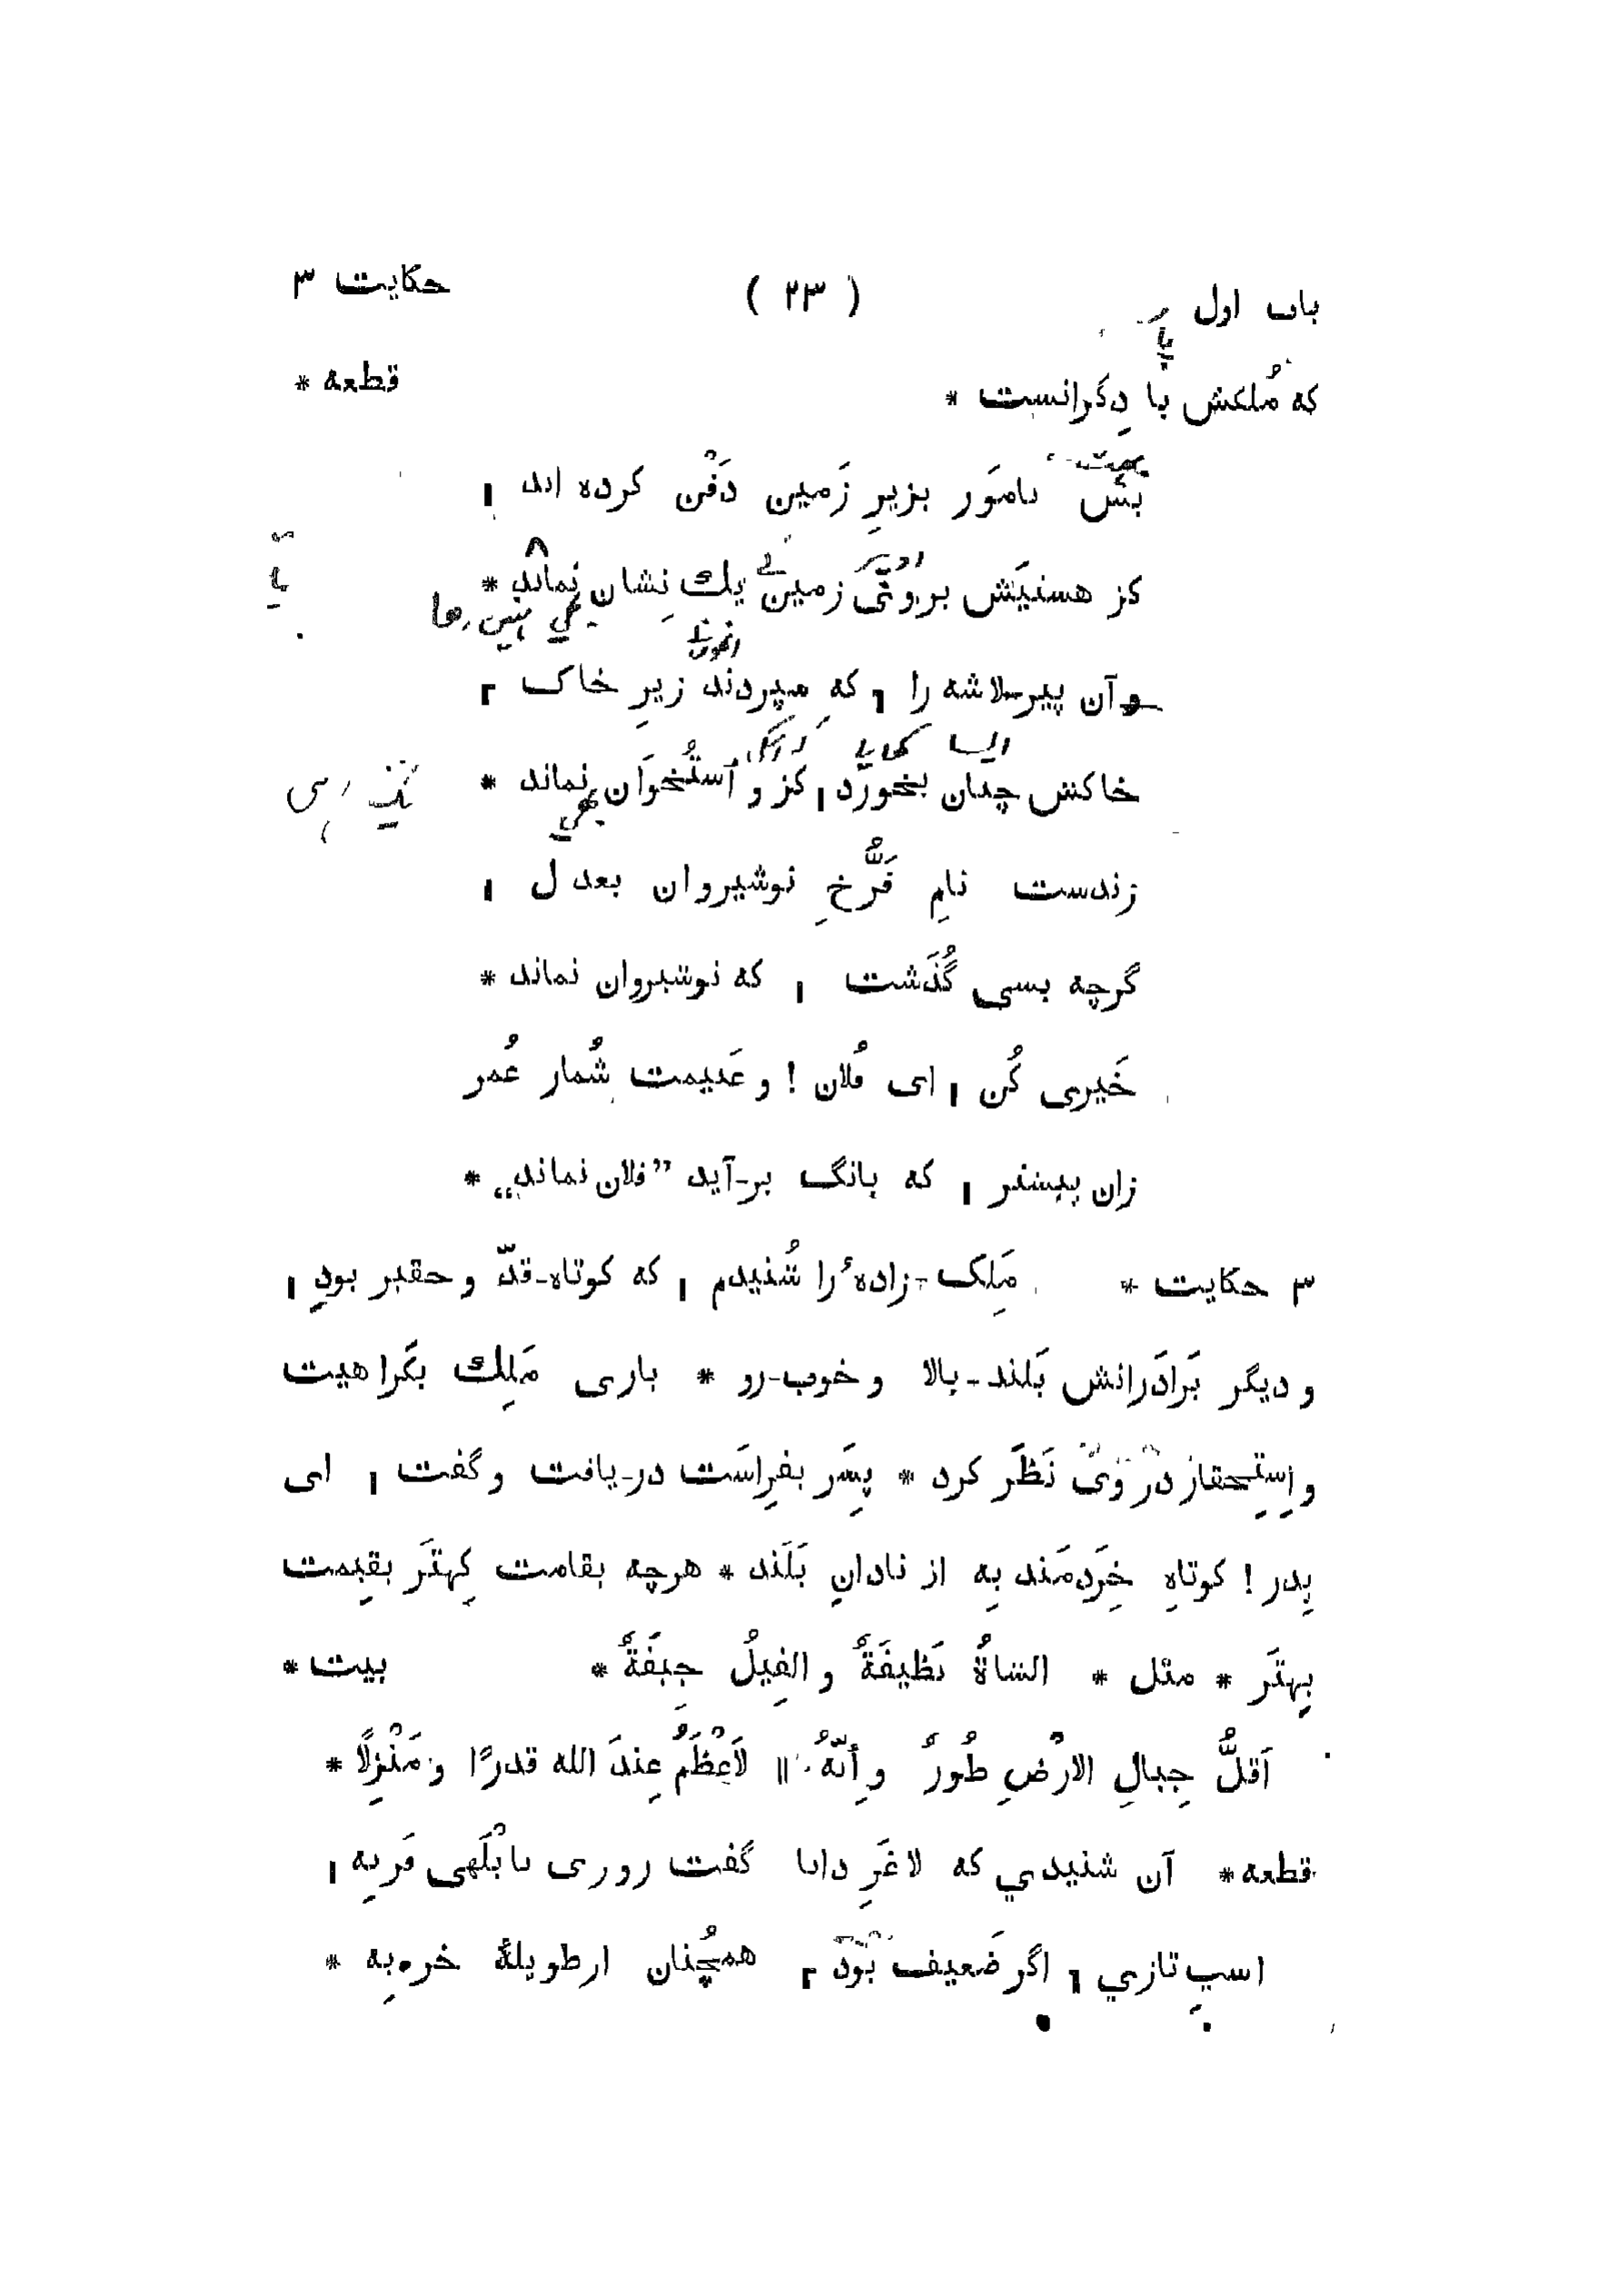 باب اول ( ۲۳ ) حکایت ۳
که مُلکش با دِگرانست * قطعه *
بَس نامور بزیرِ زَمین دَفْن کرده اند ا
کز هستیَش بروُی زمین یك نِشان نماند *
و آن پیر-لاشه را ٦ که سپردند زیرِ خاک ٢
خاکش چنان بخورد ا کز و اُستُخوان نماند *
زندست نامِ فَرُّخِ نوشیروان بعدل ا
گرچه بسی گُذَشت ا که نوشیروان نماند *
خَیری کُن ا ای فُلان ! و غَنیمت شُمار عُمر
زان پیشتر ا که بانگ بر-آید ”فلان نماند“ *
۳ حکایت * مَلِک-زادهٔ را شُنیدم ا که کوتاه-قدّ و حقیر بود ا
و دیگر بَرادَرانش بَلند-بالا و خوب-رو * باری مَلِك بکَراهیت
و اِستِحقار در وَی نَظَر کرد * پِسَر بفِراسَت در-یافت و گفت ا ای
پِدر ! کوتاهِ خِرَدمَند بِه از نادانِ بَلَند * هرچه بقامت کِهتَر بقیمت
بِهتَر * مثل * الشاةُ نَظیفَةٌ و الفِیلُ جِیفَةٌ * بیت *
اَقلُّ جِبالِ الارْضِ طُورٌ و اِنّهُ ‖ لَاَعْظَمُ عِندَ الله قدرًا و مَنْزِلًا *
قطعه * آن شنیدي که لاغَرِ دانا گفت روزی بابْلَهی فَربِه ا
اسپِ تازي ٦ اگر ضَعیف بُوَد ٢ همچُنان از طویلهٔ خر بِه *